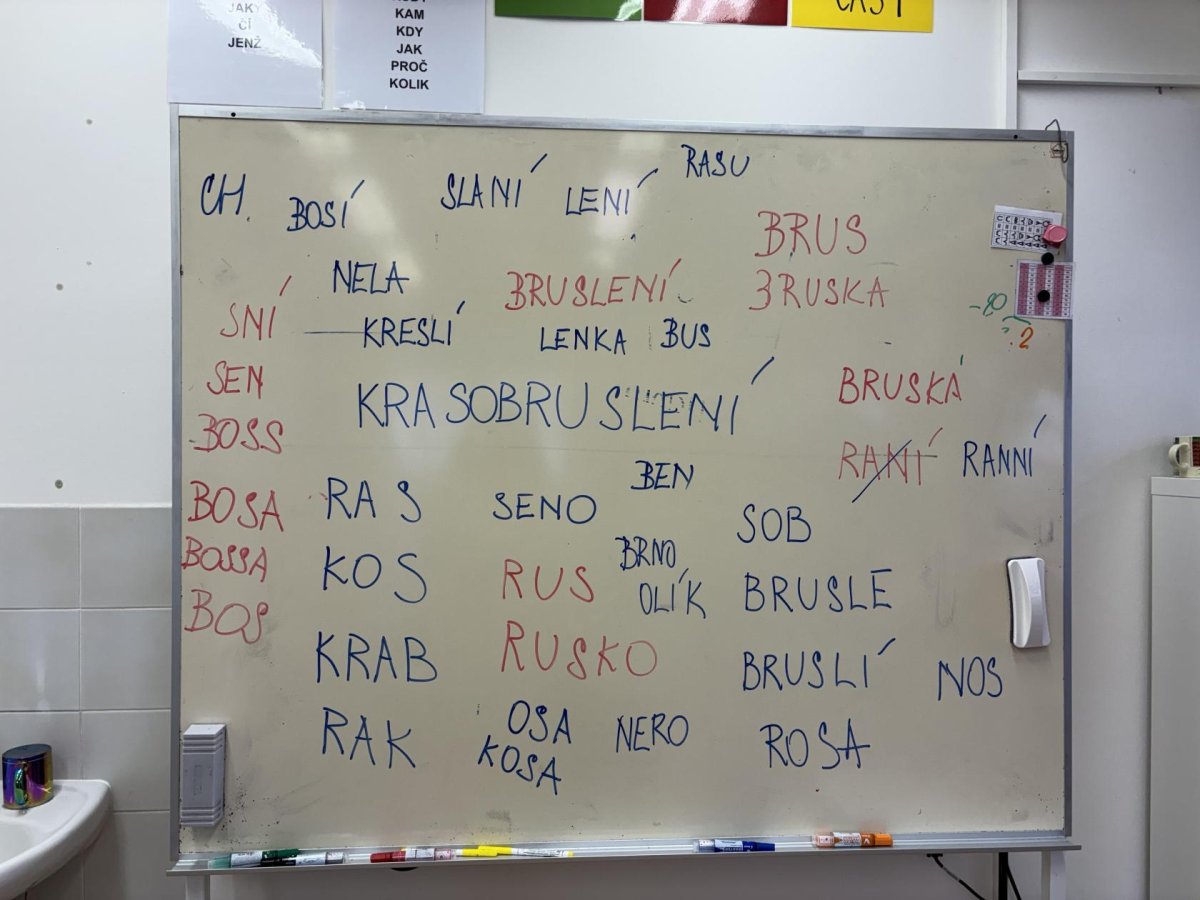 JAKÝ
ČÍ
JENŽ
KAM
KDY
JAK
PROČ
KOLIK
ČÁST
CH.
BOSÍ
SLANÍ
LENÍ
RASU
BRUS
NELA
BRUSLENÍ
BRUSKA
SNÍ
KRESLÍ
LENKA
BUS
SEN
KRASOBRUSLENÍ
BRUSKÁ
BOSS
RANÍ
RANNÍ
BEN
BOSA
RAS
SENO
SOB
BOSSA
KOS
RUS
BRNO
OLÍK
BRUSLE
BOS
KRAB
RUSKO
BRUSLÍ
NOS
RAK
OSA
KOSA
NERO
ROSA